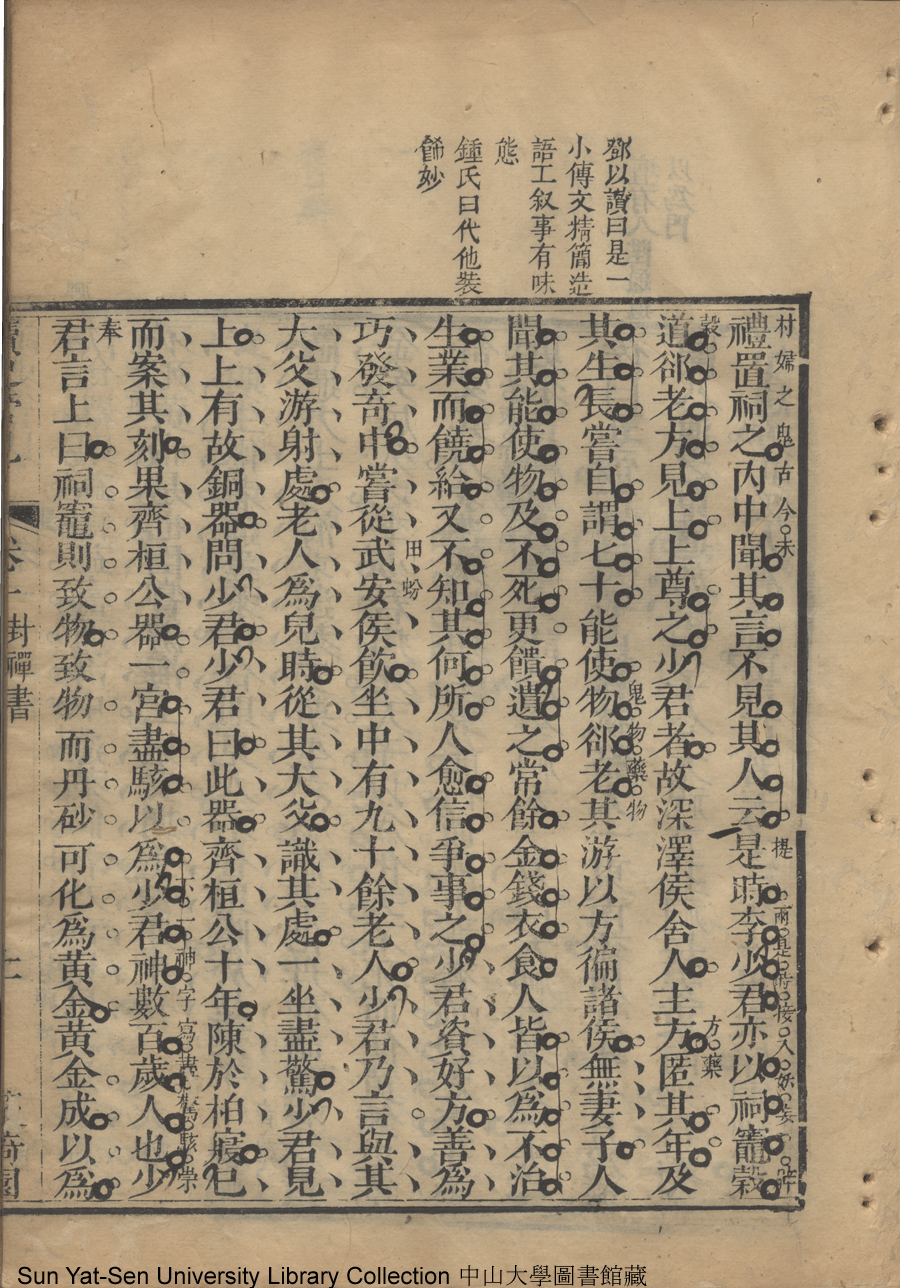 鄧以讚曰是一
小傳文精簡造
語工叙事有味
態
鍾氏曰代他裝
餙妙
村婦之鬼古今未
禮置祠之內中聞其言不見其人云是時李少君亦以祠竈穀
提
兩是時接入好妄
道卻老方見上上尊之少君者故深澤侯舍人主方匿其年及
方藥
其生長嘗自謂七十能使物卻老其游以方徧諸侯無妻子人
鬼物藥物
聞其能使物及不死更饋遺之常餘金錢衣食人皆以為不治
生業而饒給又不知其何所人愈信爭事之少君資好方善為
巧發奇中嘗從武安侯飲坐中有九十餘老人少君乃言與其
田蚡
大父游射處老人為兒時從其大父識其處一坐盡驚少君見
上上有故銅器問少君少君曰此器齊桓公十年陳於柏寢已
而案其刻果齊桓公器一宮盡駭以為少君神數百歲人也少
奉
君言上曰祠竈則致物致物而丹砂可化為黃金黃金成以為
卷十封禪書
奇園
Sun Yat-Sen University Library Collection 中山大學圖書館藏